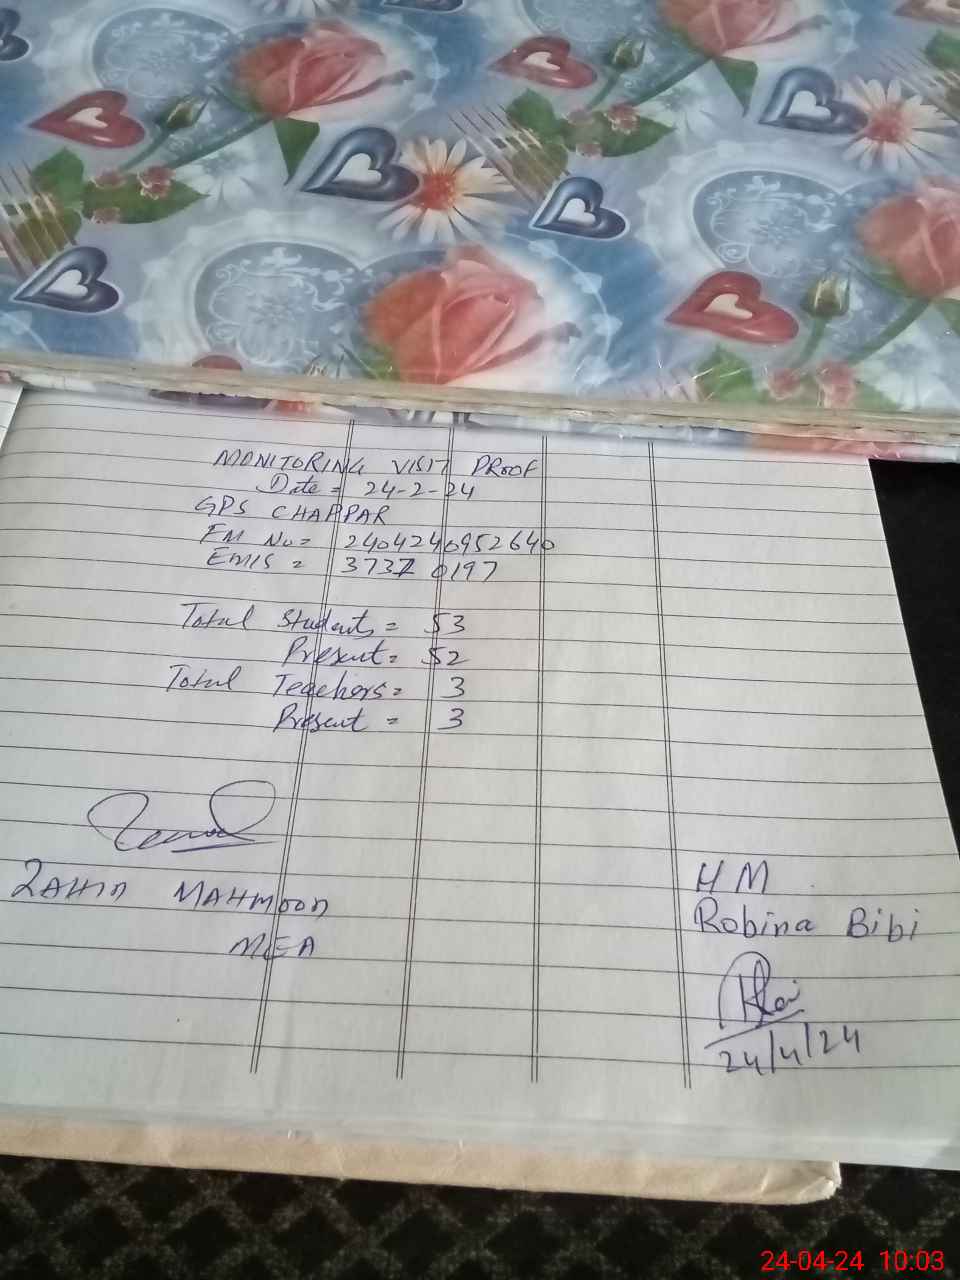 MONITORING VISIT PROOF
Date = 24-2-24
GPS CHAPPAR
FM No = 2404240952640
EMIS = 37370197
Total Students = 53
Present = 52
Total Teachers = 3
Present = 3
ZAHID MAHMOOD
MEA
HM
Robina Bibi
24/4/24
24-04-24 10:03